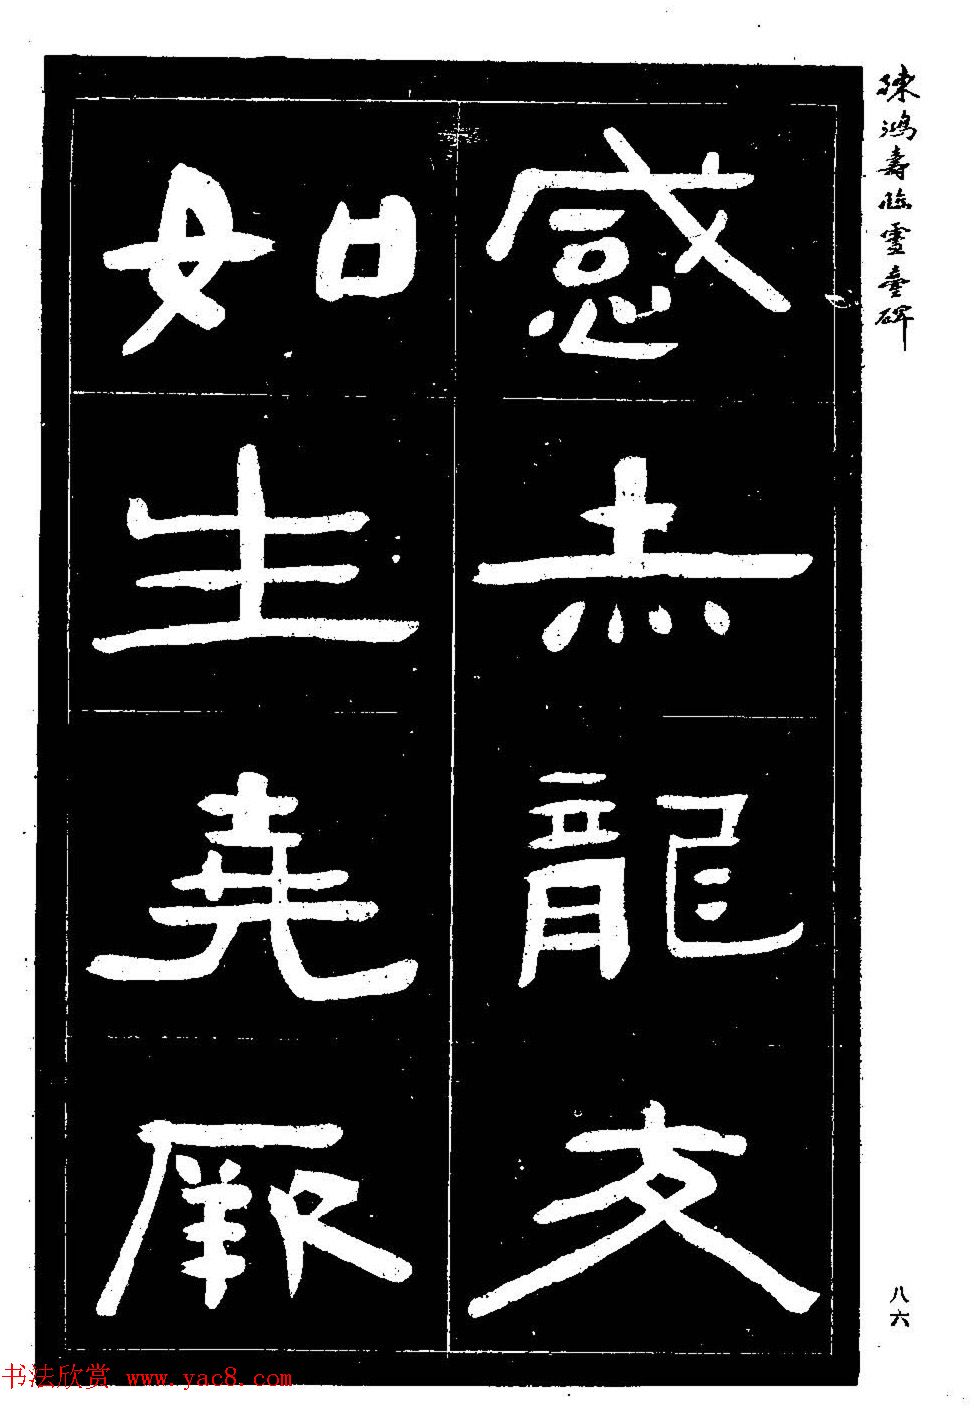 陳鴻壽臨靈臺碑
感赤龍交
如生堯厥
八六
书法欣赏 www.yac8.com